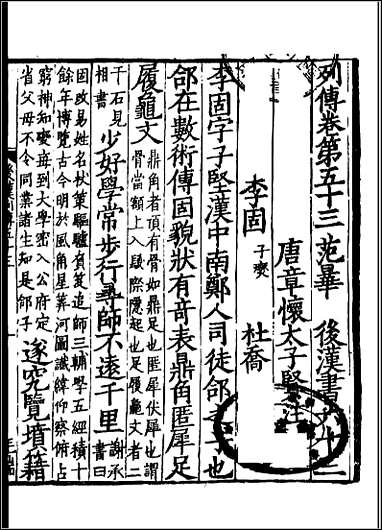 列傳卷第五十三 范曄 後漢書六十三
唐章懷太子賢注
李固 子燮 杜喬
李固字子堅漢中南鄭人司徒郃之子也
郃在數術傳固貌狀有奇表鼎角匿犀足
履龜文 鼎角者頂有骨如鼎足也匿犀伏犀也謂
骨當額上入髮際隱起也足履龜文者二
千石見
相書 少好學常步行尋師不遠千里 謝承
書曰
固改易姓名杖策驅驢負笈追師三輔學五經積十
餘年博覽古今明於風角星筭河圖讖緯仰察俯占
窮神知變每到大學密入公府定
省父母不令同業諸生知是郃子 遂究覽墳籍